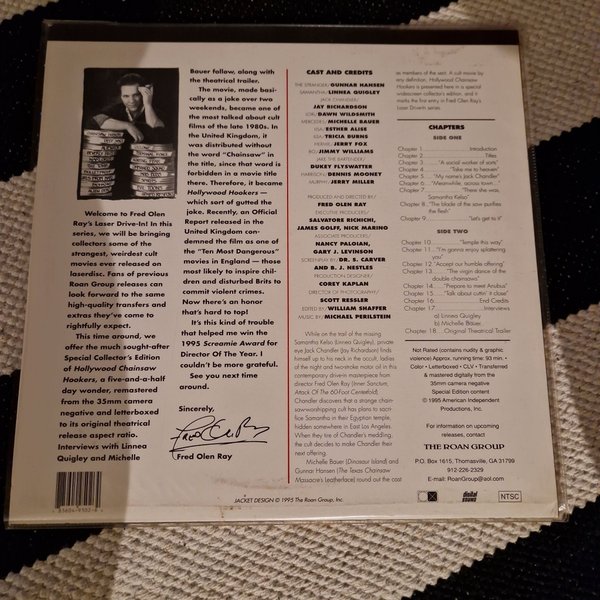 Welcome to Fred Olen
Ray's Laser Drive-In! In this
series, we will be bringing
collectors some of the
strangest, weirdest cult
movies ever released on
laserdisc. Fans of previous
Roan Group releases can
look forward to the same
high-quality transfers and
extras they've come to
rightfully expect.
This time around, we
offer the much sought-after
Special Collector's Edition
of Hollywood Chainsaw
Hookers, a five-and-a-half
day wonder, remastered
from the 35mm camera
negative and letterboxed
to its original theatrical
release aspect ratio.
Interviews with Linnea
Quigley and Michelle
Bauer follow, along with
the theatrical trailer.
The movie, made basi-
cally as a joke over two
weekends, became one of
the most talked about cult
films of the late 1980s. In
the United Kingdom, it
was distributed without
the word "Chainsaw" in
the title, since that word is
forbidden in a movie title
there. Therefore, it became
Hollywood Hookers —
which sort of gutted the
joke. Recently, an Official
Report released in the
United Kingdom con-
demned the film as one of
the "Ten Most Dangerous"
movies in England — those
most likely to inspire chil-
dren and disturbed Brits to
commit violent crimes.
Now there's an honor
that's hard to top!
It's this kind of trouble
that helped me win the
1995 Screamie Award for
Director Of The Year. I
couldn't be more grateful.
See you next time
around.
Sincerely,
Fred Olen Ray
Fred Olen Ray
CAST AND CREDITS
THE STRANGER/ GUNNAR HANSEN
SAMANTHA/ LINNEA QUIGLEY
JACK CHANDLER/
JAY RICHARDSON
LORI/ DAWN WILDSMITH
MERCEDES/ MICHELLE BAUER
LISA/ ESTHER ALISE
ILSA/ TRICIA BURNS
HERMIE/ JERRY FOX
BO/ JIMMY WILLIAMS
JAKE THE BARTENDER/
DUKEY FLYSWATTER
HARRISON/ DENNIS MOONEY
MURPHY/ JERRY MILLER
PRODUCED AND DIRECTED BY/
FRED OLEN RAY
EXECUTIVE PRODUCERS/
SALVATORE RICHICHI,
JAMES GOLFF, NICK MARINO
ASSOCIATE PRODUCERS/
NANCY PALOIAN,
GARY J. LEVINSON
SCREENPLAY BY/ DR. S. CARVER
AND B. J. NESTLES
PRODUCTION DESIGNER/
COREY KAPLAN
DIRECTOR OF PHOTOGRAPHY/
SCOTT RESSLER
EDITED BY/ WILLIAM SHAFFER
MUSIC BY/ MICHAEL PERILSTEIN
While on the trail of the missing
Samantha Kelso (Linnea Quigley), private
eye Jack Chandler (Jay Richardson) finds himself
up to his neck in the occult, ladies
of the night and two-stroke motor oil in this
contemporary drive-in masterpiece from
director Fred Olen Ray (Inner Sanctum,
Attack Of The 60-Foot Centerfold).
Chandler discovers that a strange chain-
saw-worshipping cult has plans to sacri-
fice Samantha in their Egyptian temple,
hidden somewhere in East Los Angeles.
When they tire of Chandler's meddling,
the cult decides to make Chandler their
next offering.
Michelle Bauer (Dinosaur Island) and
Gunnar Hansen (The Texas Chainsaw
Massacre's Leatherface) round out the cast
as members of the sect. A cult movie by
any definition, Hollywood Chainsaw
Hookers is presented here in a special
widescreen collector's edition, and it
marks the first entry in Fred Olen Ray's
Laser Drive-In series.
CHAPTERS
SIDE ONE
Chapter 1 Introduction
Chapter 2 Titles
Chapter 3 "A social worker of sorts"
Chapter 4 "Take me to heaven"
Chapter 5 "My name's Jack Chandler"
Chapter 6 "Meanwhile, across town..."
Chapter 7 "There she was,
Samantha Kelso"
Chapter 8 "The blade of the saw purifies
the flesh"
Chapter 9 "Let's get to it"
SIDE TWO
Chapter 10 "Temple this way"
Chapter 11 "I'm gonna enjoy splattering
you"
Chapter 12 "Accept our humble offering"
Chapter 13 "The virgin dance of the
double chainsaws"
Chapter 14 "Prepare to meet Anubis"
Chapter 15 "Talk about cuttin' it close"
Chapter 16 End Credits
Chapter 17 Interviews
a) Linnea Quigley
b) Michelle Bauer
Chapter 18 Original Theatrical Trailer
Not Rated (contains nudity & graphic
violence) Approx. running time: 90 min. •
Color • Letterboxed • CLV • Transferred
& mastered digitally from the
35mm camera negative
Special Edition content
© 1995 American Independent
Productions, Inc.
For information on upcoming
releases, contact
THE ROAN GROUP
P.O. Box 1615, Thomasville, GA 31799
912-226-2329
E-mail: RoanGroup@aol.com
JACKET DESIGN © 1995 The Roan Group, Inc.
CX
digital
sound
NTSC